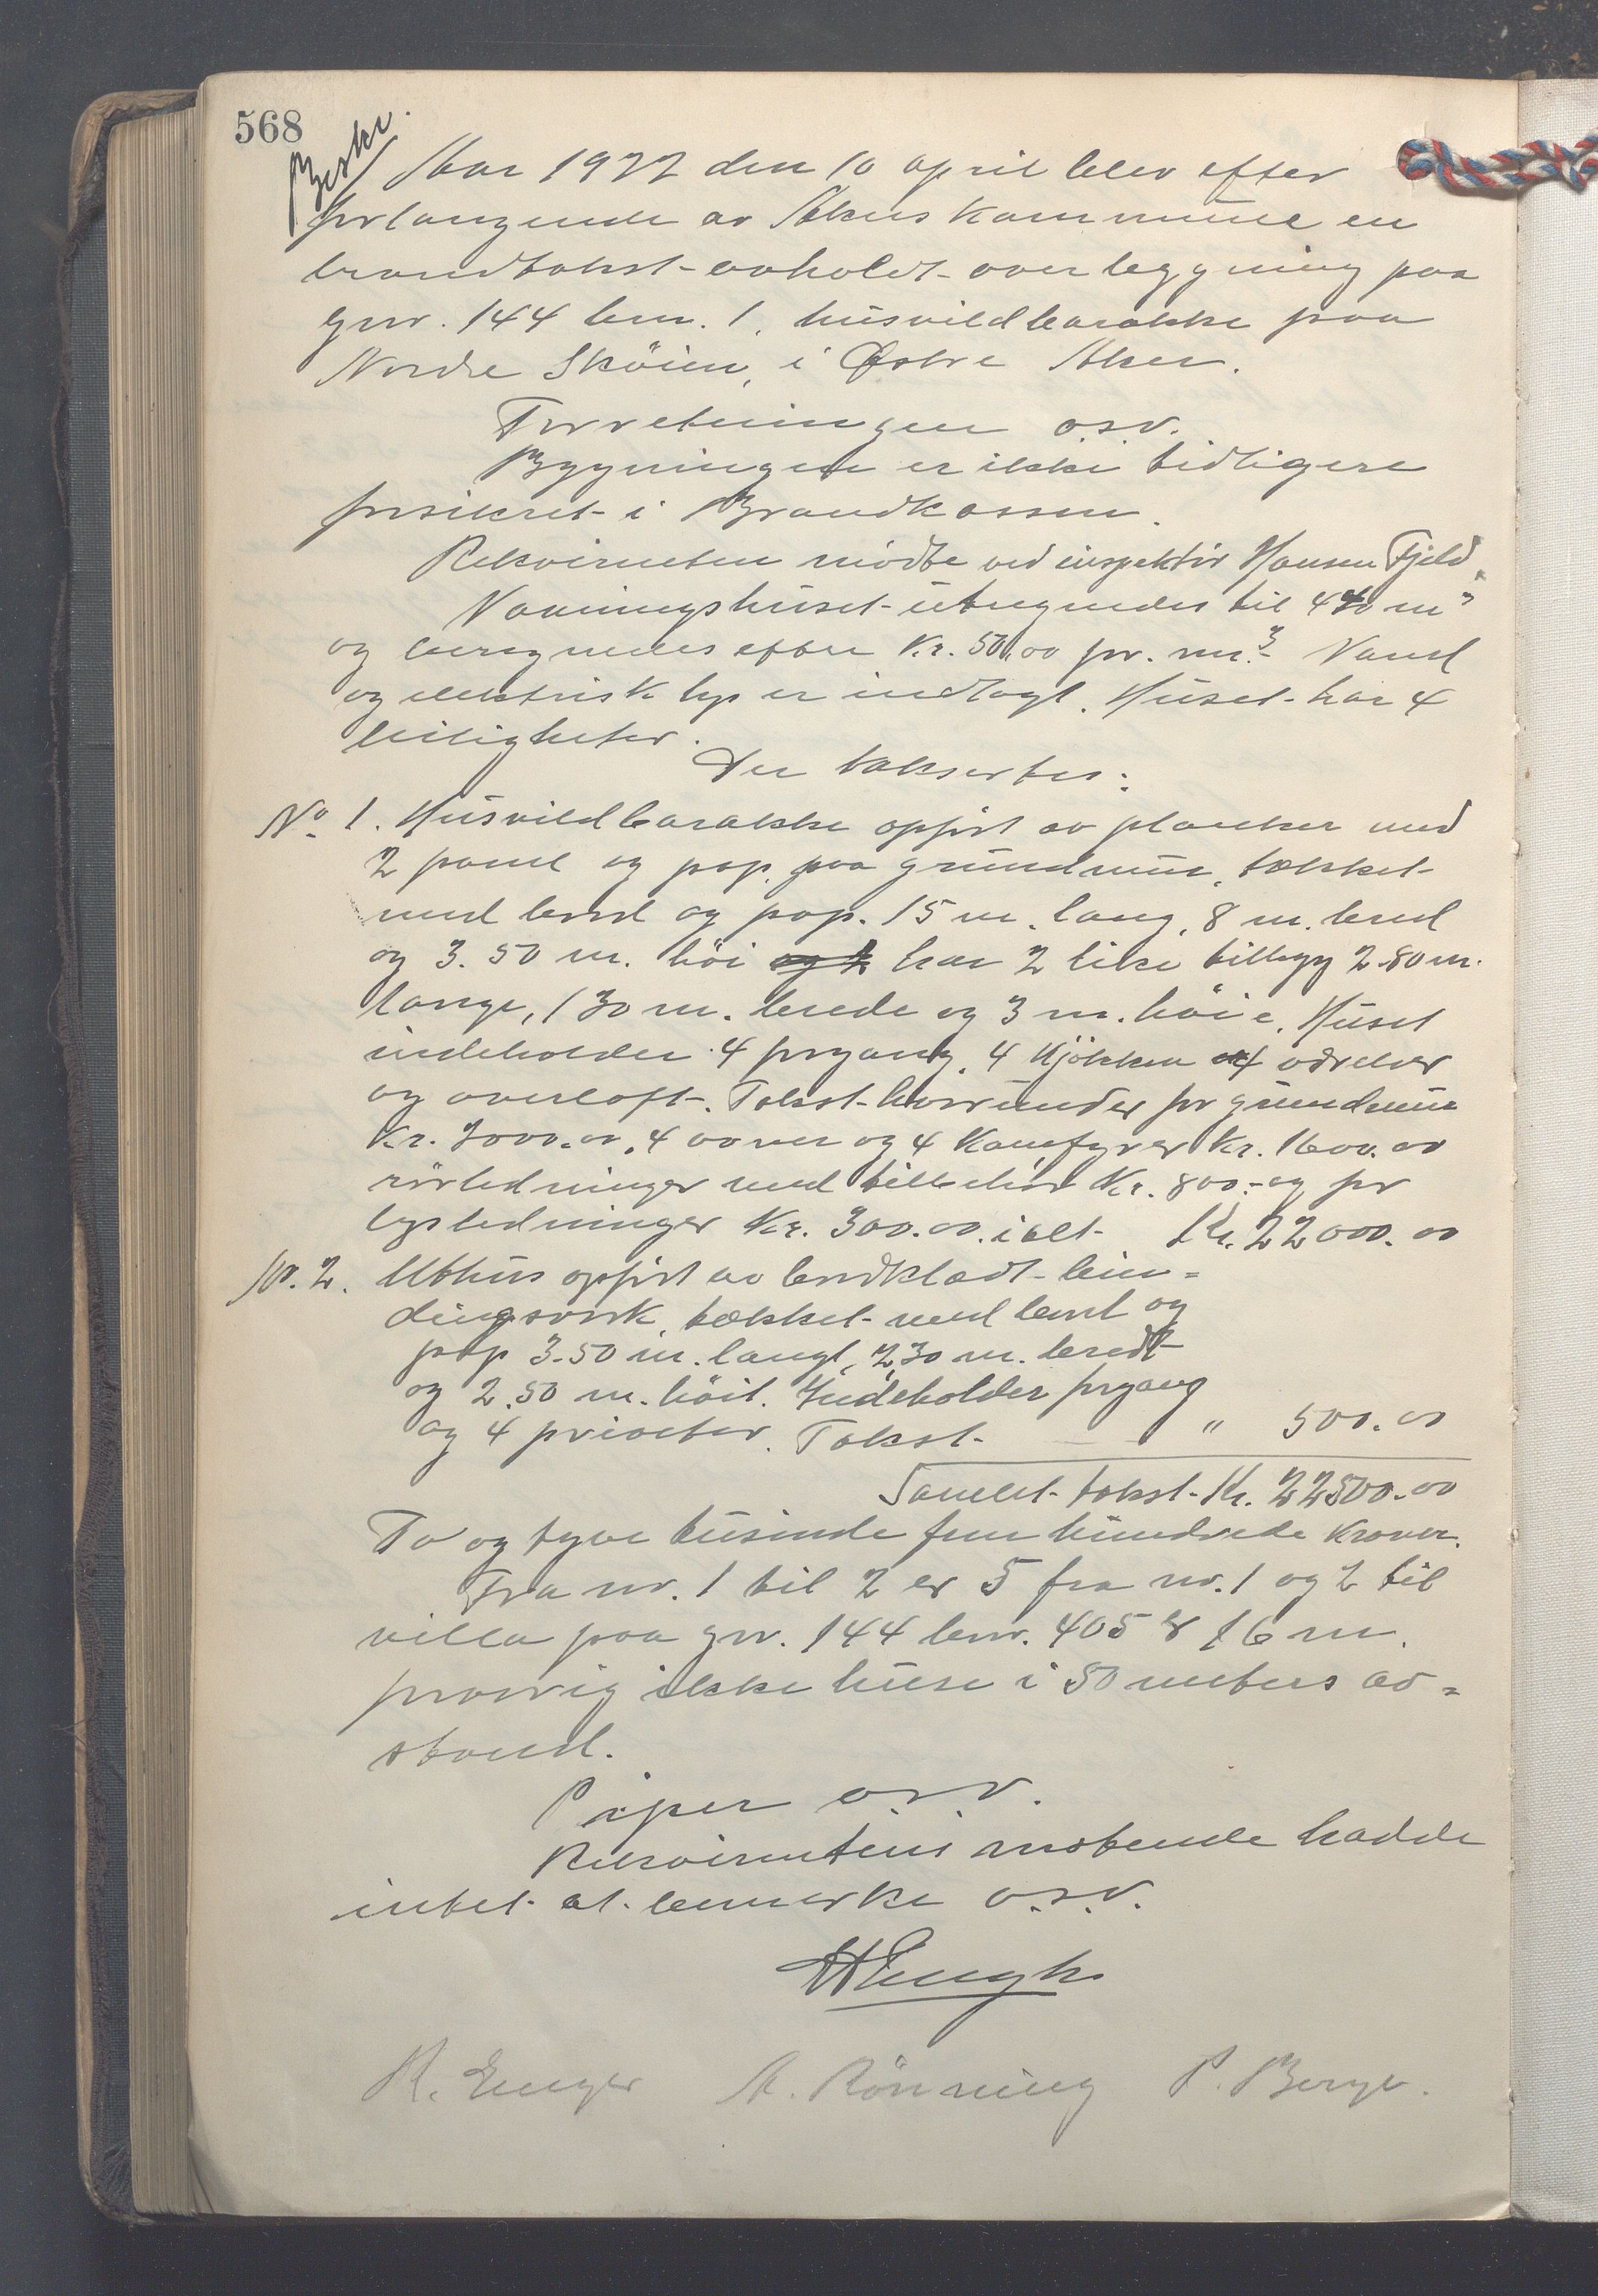 568
Beskr.
Aar 1922 den 10 april blev efter
forlangende av Akers kommune en
brandtakst avholdt over bygning paa
gnr. 144 bnr. 1, husvildbarakke paa
Nordre Skøien, i Østre Aker.
Forretningen o.s.v.
Bygningen er ikke tidligere
forsikret i Brandkassen.
Rekvirenten mødte ved inspektør Hansen Fjeld.
Vaaningshuset utregnedes til 440 m³
og beregnedes efter Kr. 50,00 pr. m.³ Vand
og elektrisk lys er indlagt. Huset har 4
leiligheter.
Der takseertes:
No 1. Husvildbarakke opført av planker med
2 panel og pap, paa grundmur, tækket
med bord og pap. 15 m. lang, 8 m. bred
og 3.50 m. høi har 2 like tilbygg 2.80 m.
lange, 1 30 m. brede og 3 m. høie. Huset
indeholder 4 forgang, 4 kjøkken 4 værelser
og overloft. Takst hvorunder for grundmur
Kr. 2000.00, 4 ovner og 4 komfyrer Kr. 1600.00
rørledninger med tilbehør Kr. 800.- og for
lysledninger Kr. 300.00. ialt Kr. 22000.00
No. 2. Uthus opført av bordklædt bin=
dingsverk, tækket med bord og
pap 3.50 m. langt, 2,30 m. bredt
og 2.50 m. høit. Indeholder forgang
og 4 priveter. Takst " 500.00
Samlet takst Kr. 22500.00
To og tyve tusinde fem hundrede kroner.
Fra nr. 1 til 2 er 5 fra nr. 1 og 2 til
villa paa gnr. 144 bnr. 405 er 16 m.
forøvrig ikke huse i 50 meters av=
stand.
Piper o.s.v.
Rekvirentens møtende hadde
intet at bemerke o.s.v.
HEngh
R. Enger A. Rönning P. Berge.